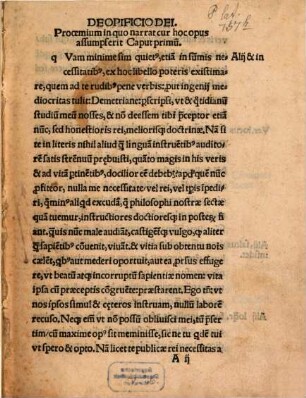 DE OPIFICIO DEI.
Proœmium in quo narrat cur hoc opus
assumpserit Caput primū.
q Vam minime sim quietꝰ, etiā in sūmis ne-
cessitatibꝰ, ex hoc libello poteris existima-
re, quem ad te rudibꝰ pene verbis: put ingenij me
diocritas tulit: Demetriane: pscripsi, vt & qtidianū
studiū meū nosses, & nō deessem tibi pceptor etiā
nūc, sed honestioris rei, meliorisq; doctrinæ, Nā si
te in literis nihil aliud q̄ linguā instruētibꝰ auditorē
satis strēnuū prebuisti, quāto magis in his veris
& ad vitā ptinētibꝰ, docilior eē debebꝭ:
pfiteor, nulla me necessitate vel rei, vel tpis īpedi-
ri, excudā. q philosophi nostræ sectæ
quā tuemur: instructiores doctioresq; in posterꝭ fi
ant. quis nūc male audiāt, castigēt vulgo, aliter
q̄ sapiētibꝰ cōuenit, viuāt, & vitia sub obtentu noīs
cælēt. aut mederi oportuit, aut ea prsus effuge
re, vt beatū atq; incorruptū sapientiæ nomen: vita
ipsa cū præceptis cōgruēte: præstarent. Ego tn̄ vt
nos ipsos simul & cęteros instruam, nullū laborē
recuso, Neq; eni vt nō possū obliuisci mei, tū pser
tim cū maxime opꝰ sit meminisse, sic ne tu quē tui
vt spero & opto. Nā licet te publicæ rei necessitas a
A ij
Alij & in